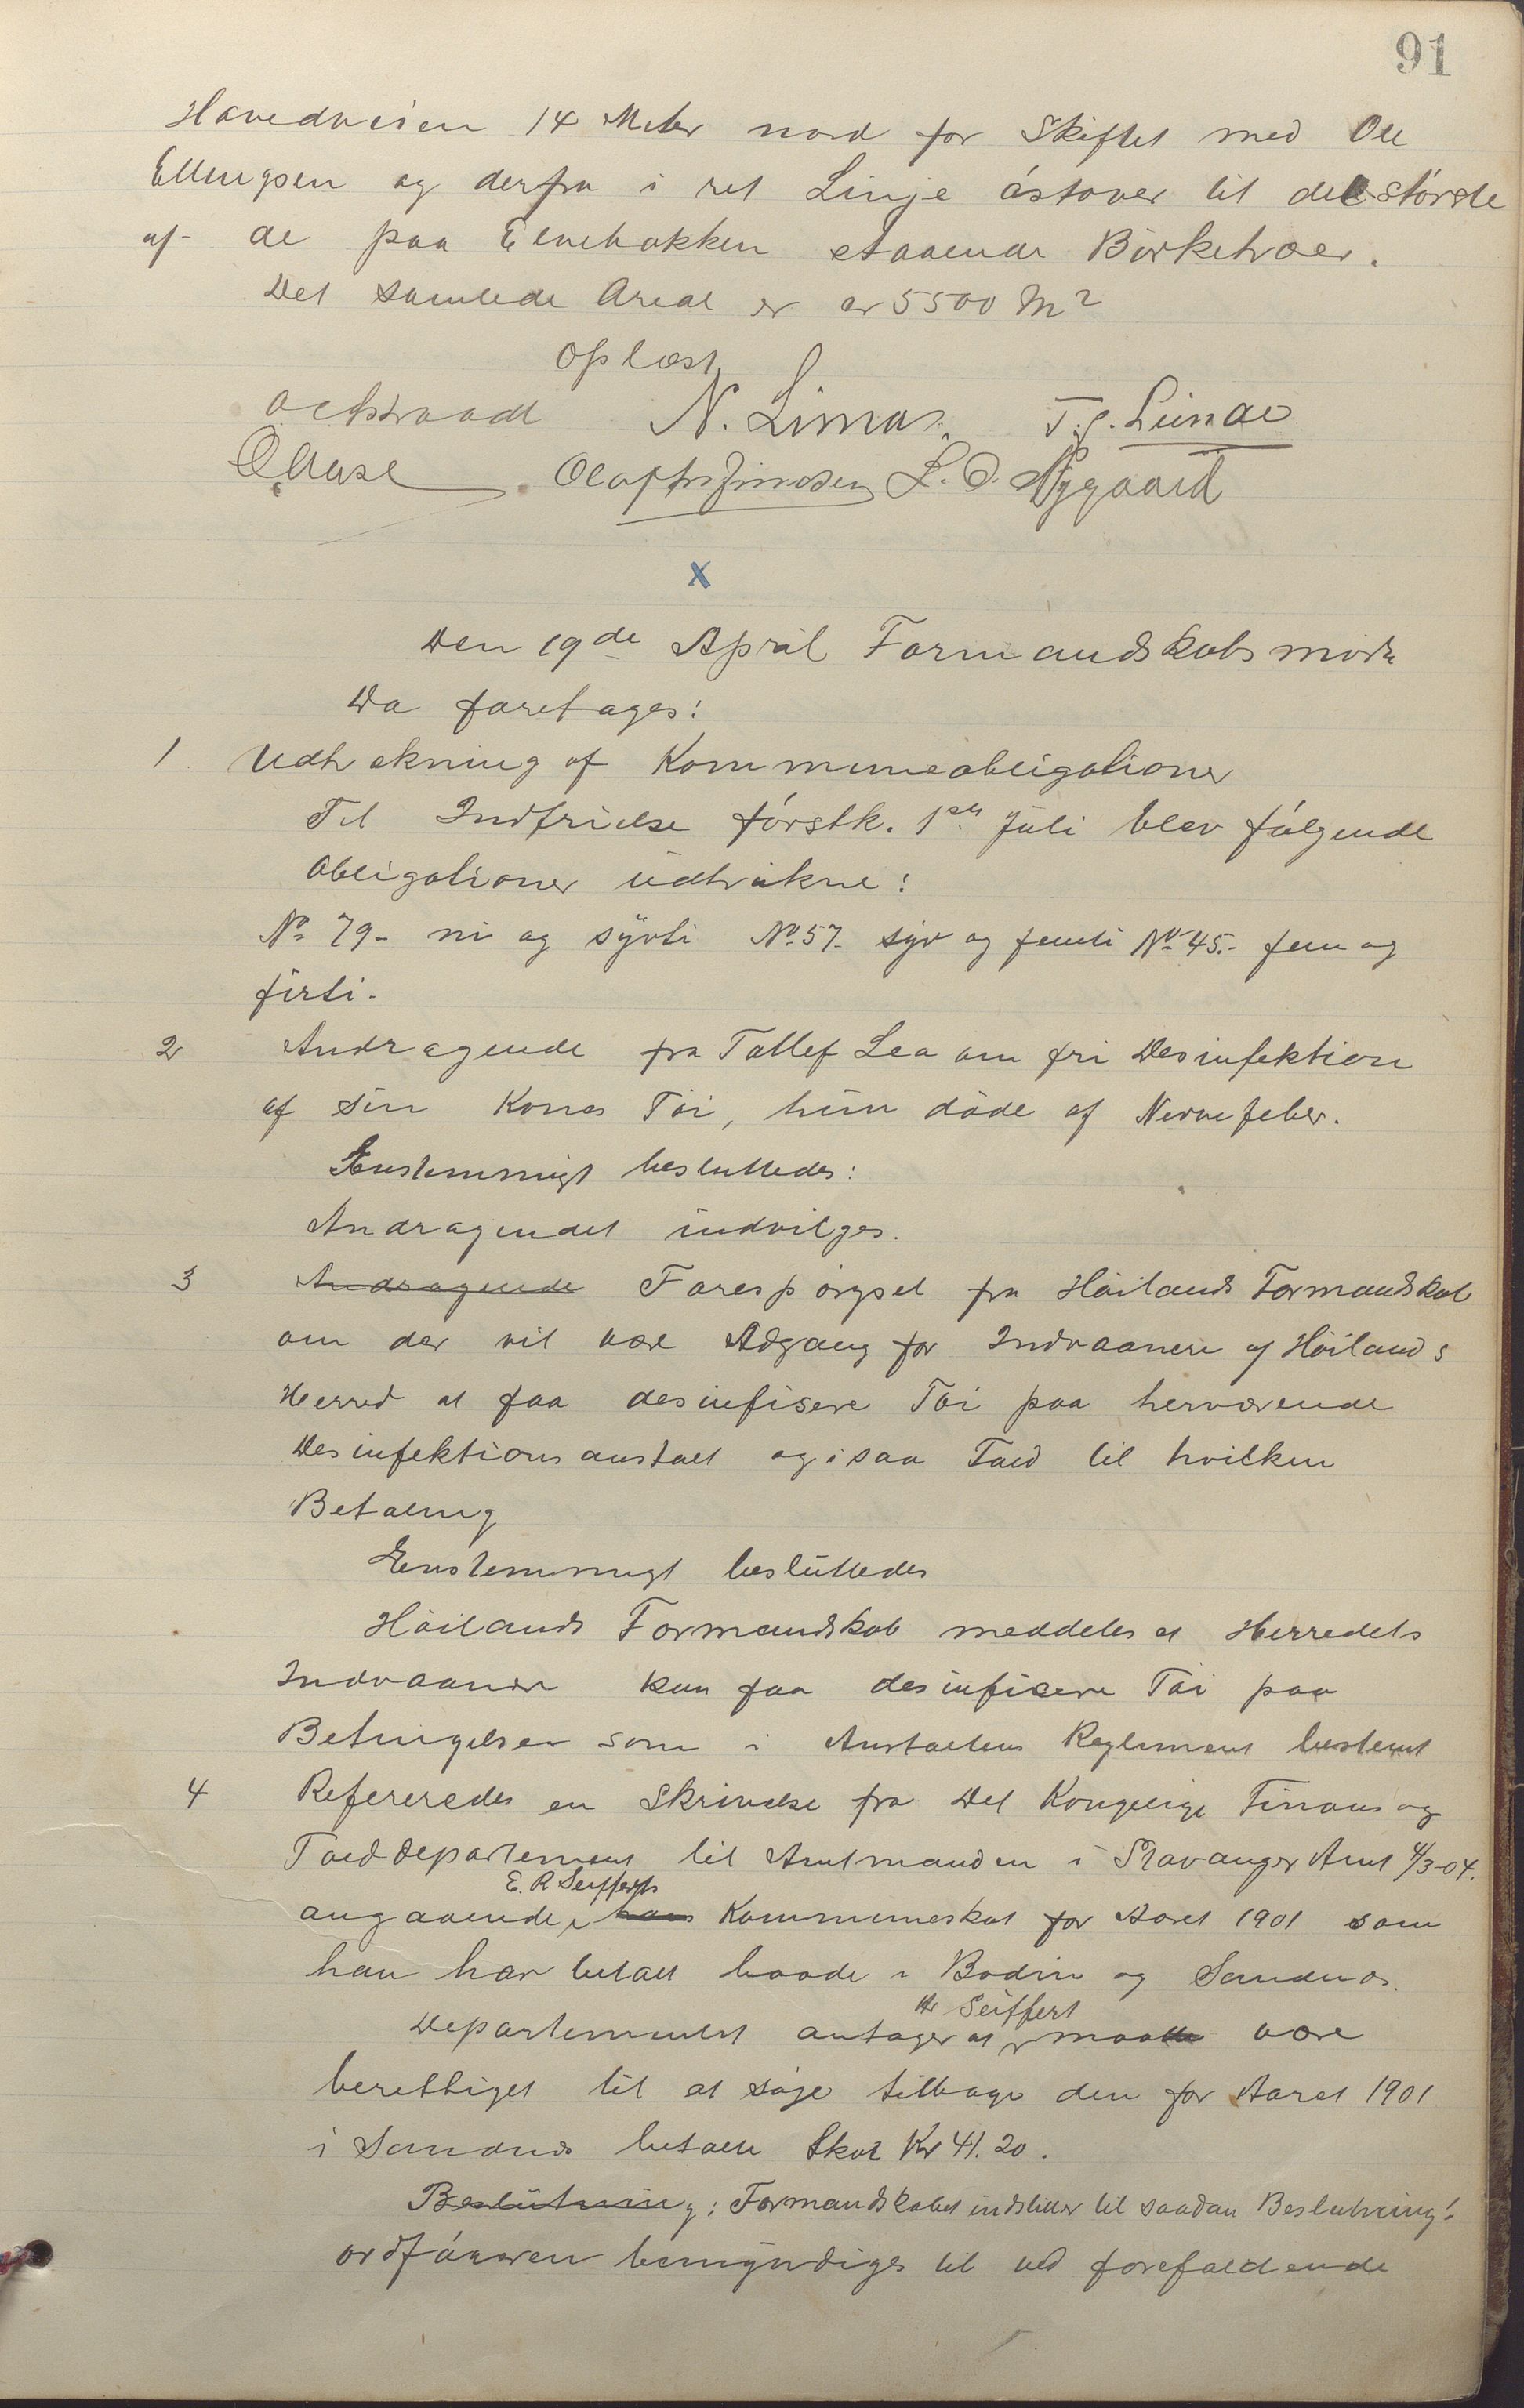 91
Hovedveien 14 Meter nord for Skiftet med Ole
Ellingsen og derfra i ret Linje óstover til det störste
af de paa Elvebakken staaende Birketræer.
Det samlede Areal er er 5500 M²
Oplæst
Actstraadt N. Limas. T. J. Lunde
O Aase Olaf Jonassen L. O. Nygaard
x
Den 19de April Formandskabsmöde
Da foretages:
1. Udtrekning af Kommuneobligationer
Til Indfrielse förstk. 1ste Juli blev fölgende
Obligationer udtrukne:
No 79 - ni og sÿvti No 57 - syv og femti No 45. - fem og
firti.
2 Andragende fra Tallef Lea om fri Desinfektion
af sin Kones Töi, hun döde af Nervefeber.
Enstemmigt besluttedes:
Andragendet indvilges.
3 Andragende Forespörgsel fra Höilands Formandskab
om der vil være Adgang for Indvaanere af Höilands
Herred at faa desinfisere Töi paa herværende
Desinfektionsanstalt og i saa Fald til hvilken
Betaling
Enstemmigt besluttedes
Höilands Formandskab meddeles at Herredets
Indvaanere kan faa desinficere Töi paa
Betingelser som i Anstaltens Reglement bestemt
4 Refereredes en Skrivelse fra Det Kongelige Finans og
Tolddepartement til Amtmanden i Stavanger Amt 4/3-04.
E. R Seifferts
angaaende hans Kommuneskat for Aaret 1901 som
han har betalt baade i Bodin og Sandnæs.
Hr Seiffert
Departementet antager at maatte være
berettiget til at söge tilbage den for Aaret 1901
i Sandnæs betalte Skat Kr 41.20.
Beslutning: Formandskabet indstiller til saadan Beslutning:
Ordföreren bemÿndiges til ved forefaldende